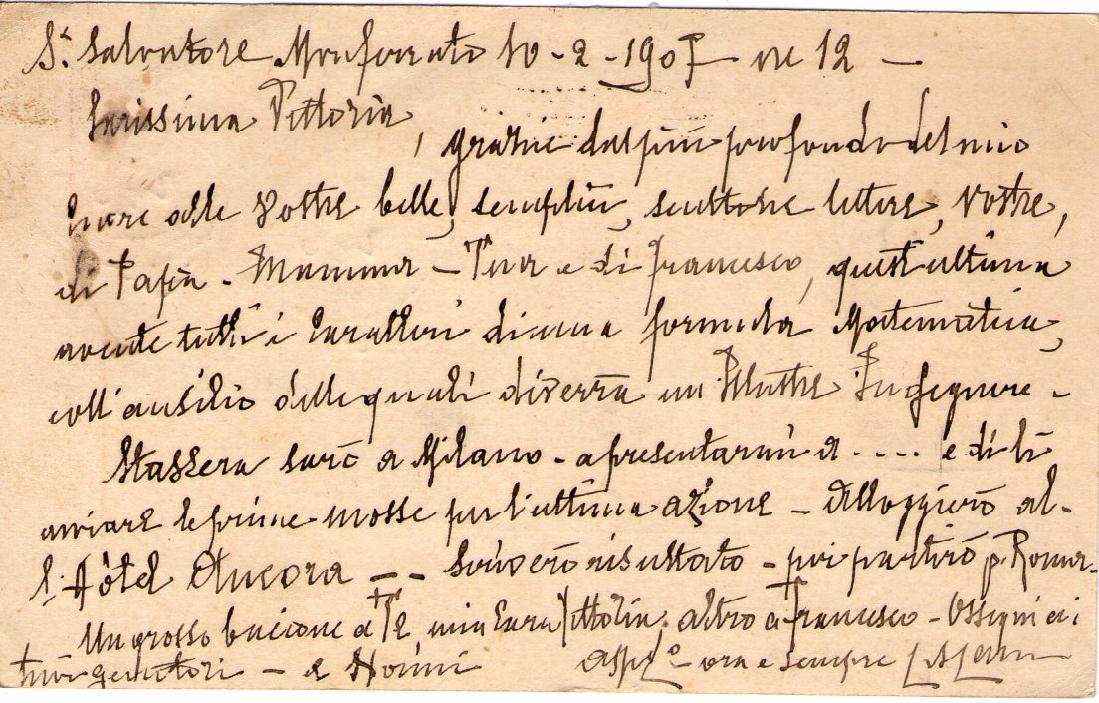 S. Salvatore Monferrato 10-2-1907 ore 12 —
Carissima Vittoria,
grazie dal più profondo del mio
cuore delle Vostre belle, semplici, lettere, Vostre,
di Papà - Mamma - Tua e di Francesco, quest'ultima
avente tutti i caratteri di una formula Matematica,
coll'ausilio delle quali diverrà un Ingegnere -
Stassera sarò a Milano - a presentarmi a .... e di lì
avviare le prime mosse per l'ultima azione - Alloggierò al-
l'Hôtel Ancora -- Scriverò risultato - poi partirò p. Roma -
Un grosso bacione a Te mia cara Vittoria, altro a Francesco - Ossequi ai
tuoi genitori - e Nonni ora e sempre